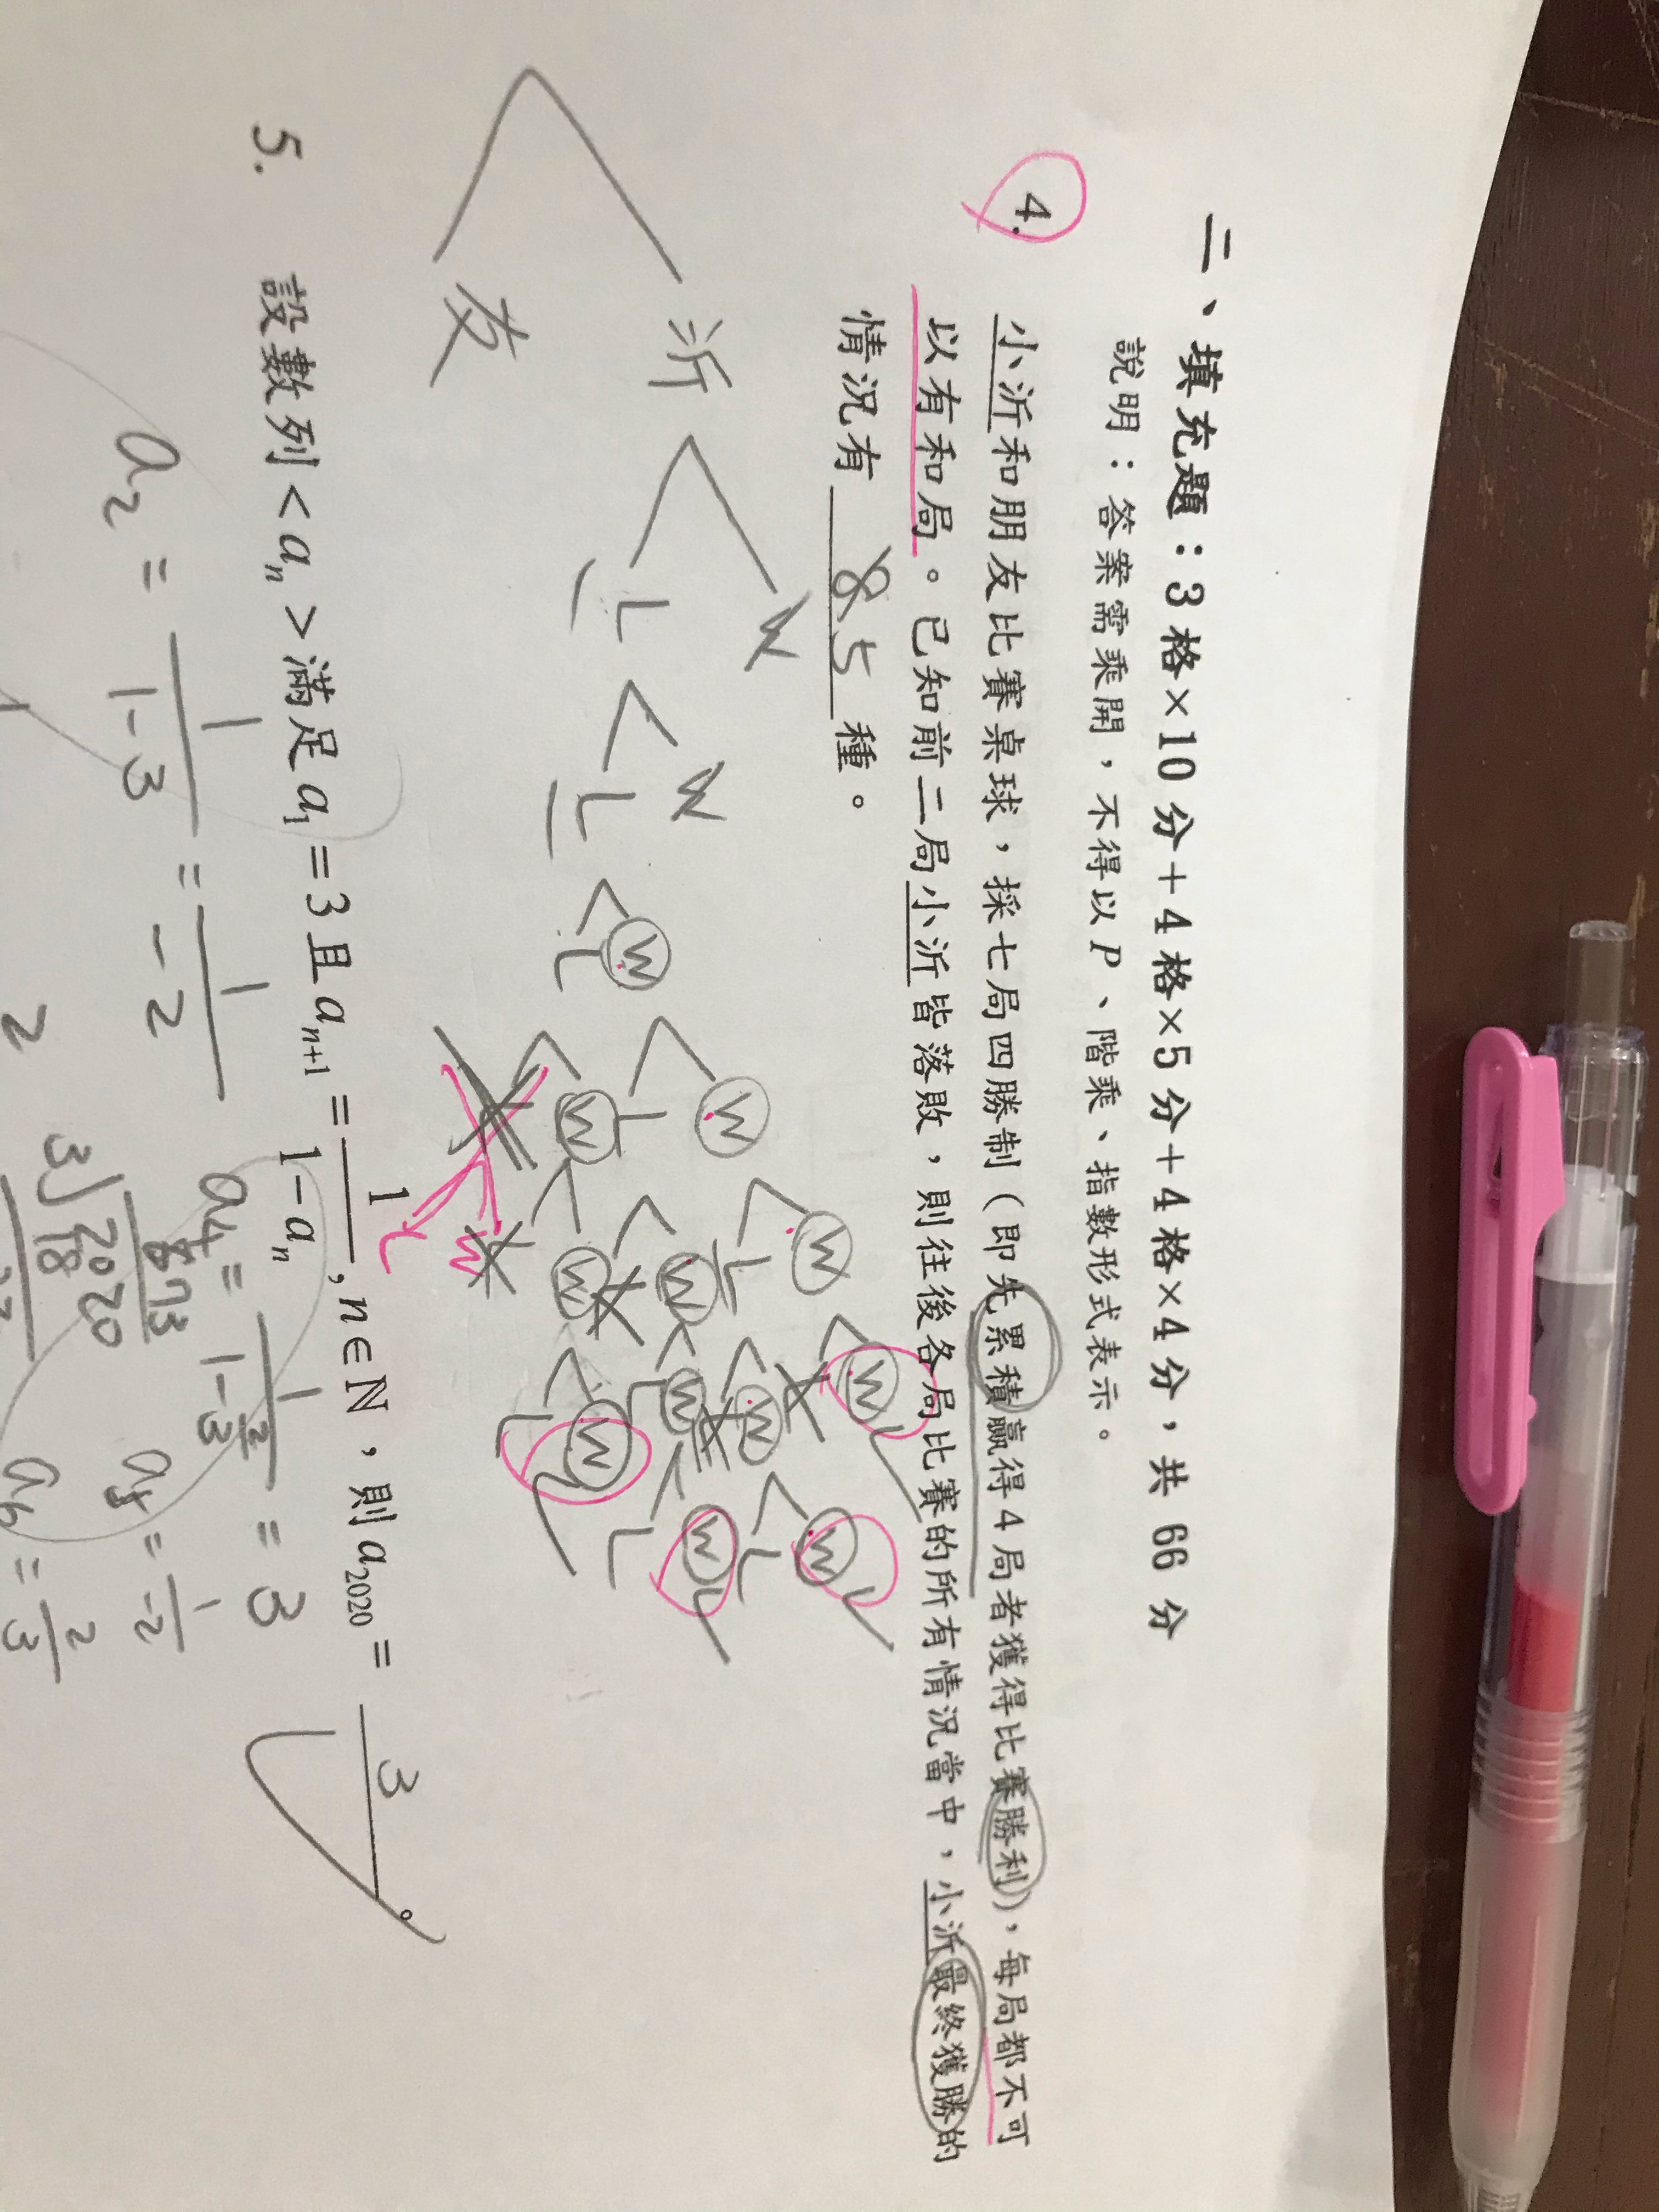 二、填充題：3格×10分＋4格×5分＋4格×4分，共 66 分
說明：答案需乘開，不得以 P、階乘、指數形式表示。
4. 小沂和朋友比賽桌球，採七局四勝制（即先累積贏得4局者獲得比賽勝利），每局都不可
以有和局。已知前二局小沂皆落敗，則往後各局比賽的所有情況當中，小沂最終獲勝的
情況有 8 5 種。
沂 W W W W W W L
L L L L
W W W L
W W W L
友
5. 設數列<aₙ>滿足a₁=3且aₙ₊₁=1/(1-aₙ), n∈ℕ，則a₂₀₂₀= 3 。
a₂ = 1/(1-3) = 1/-2
a₄ = 1/(1-2/3) = 3
a₅ = 1/-2
a₆ = 2/3
673
3)2020
18
2